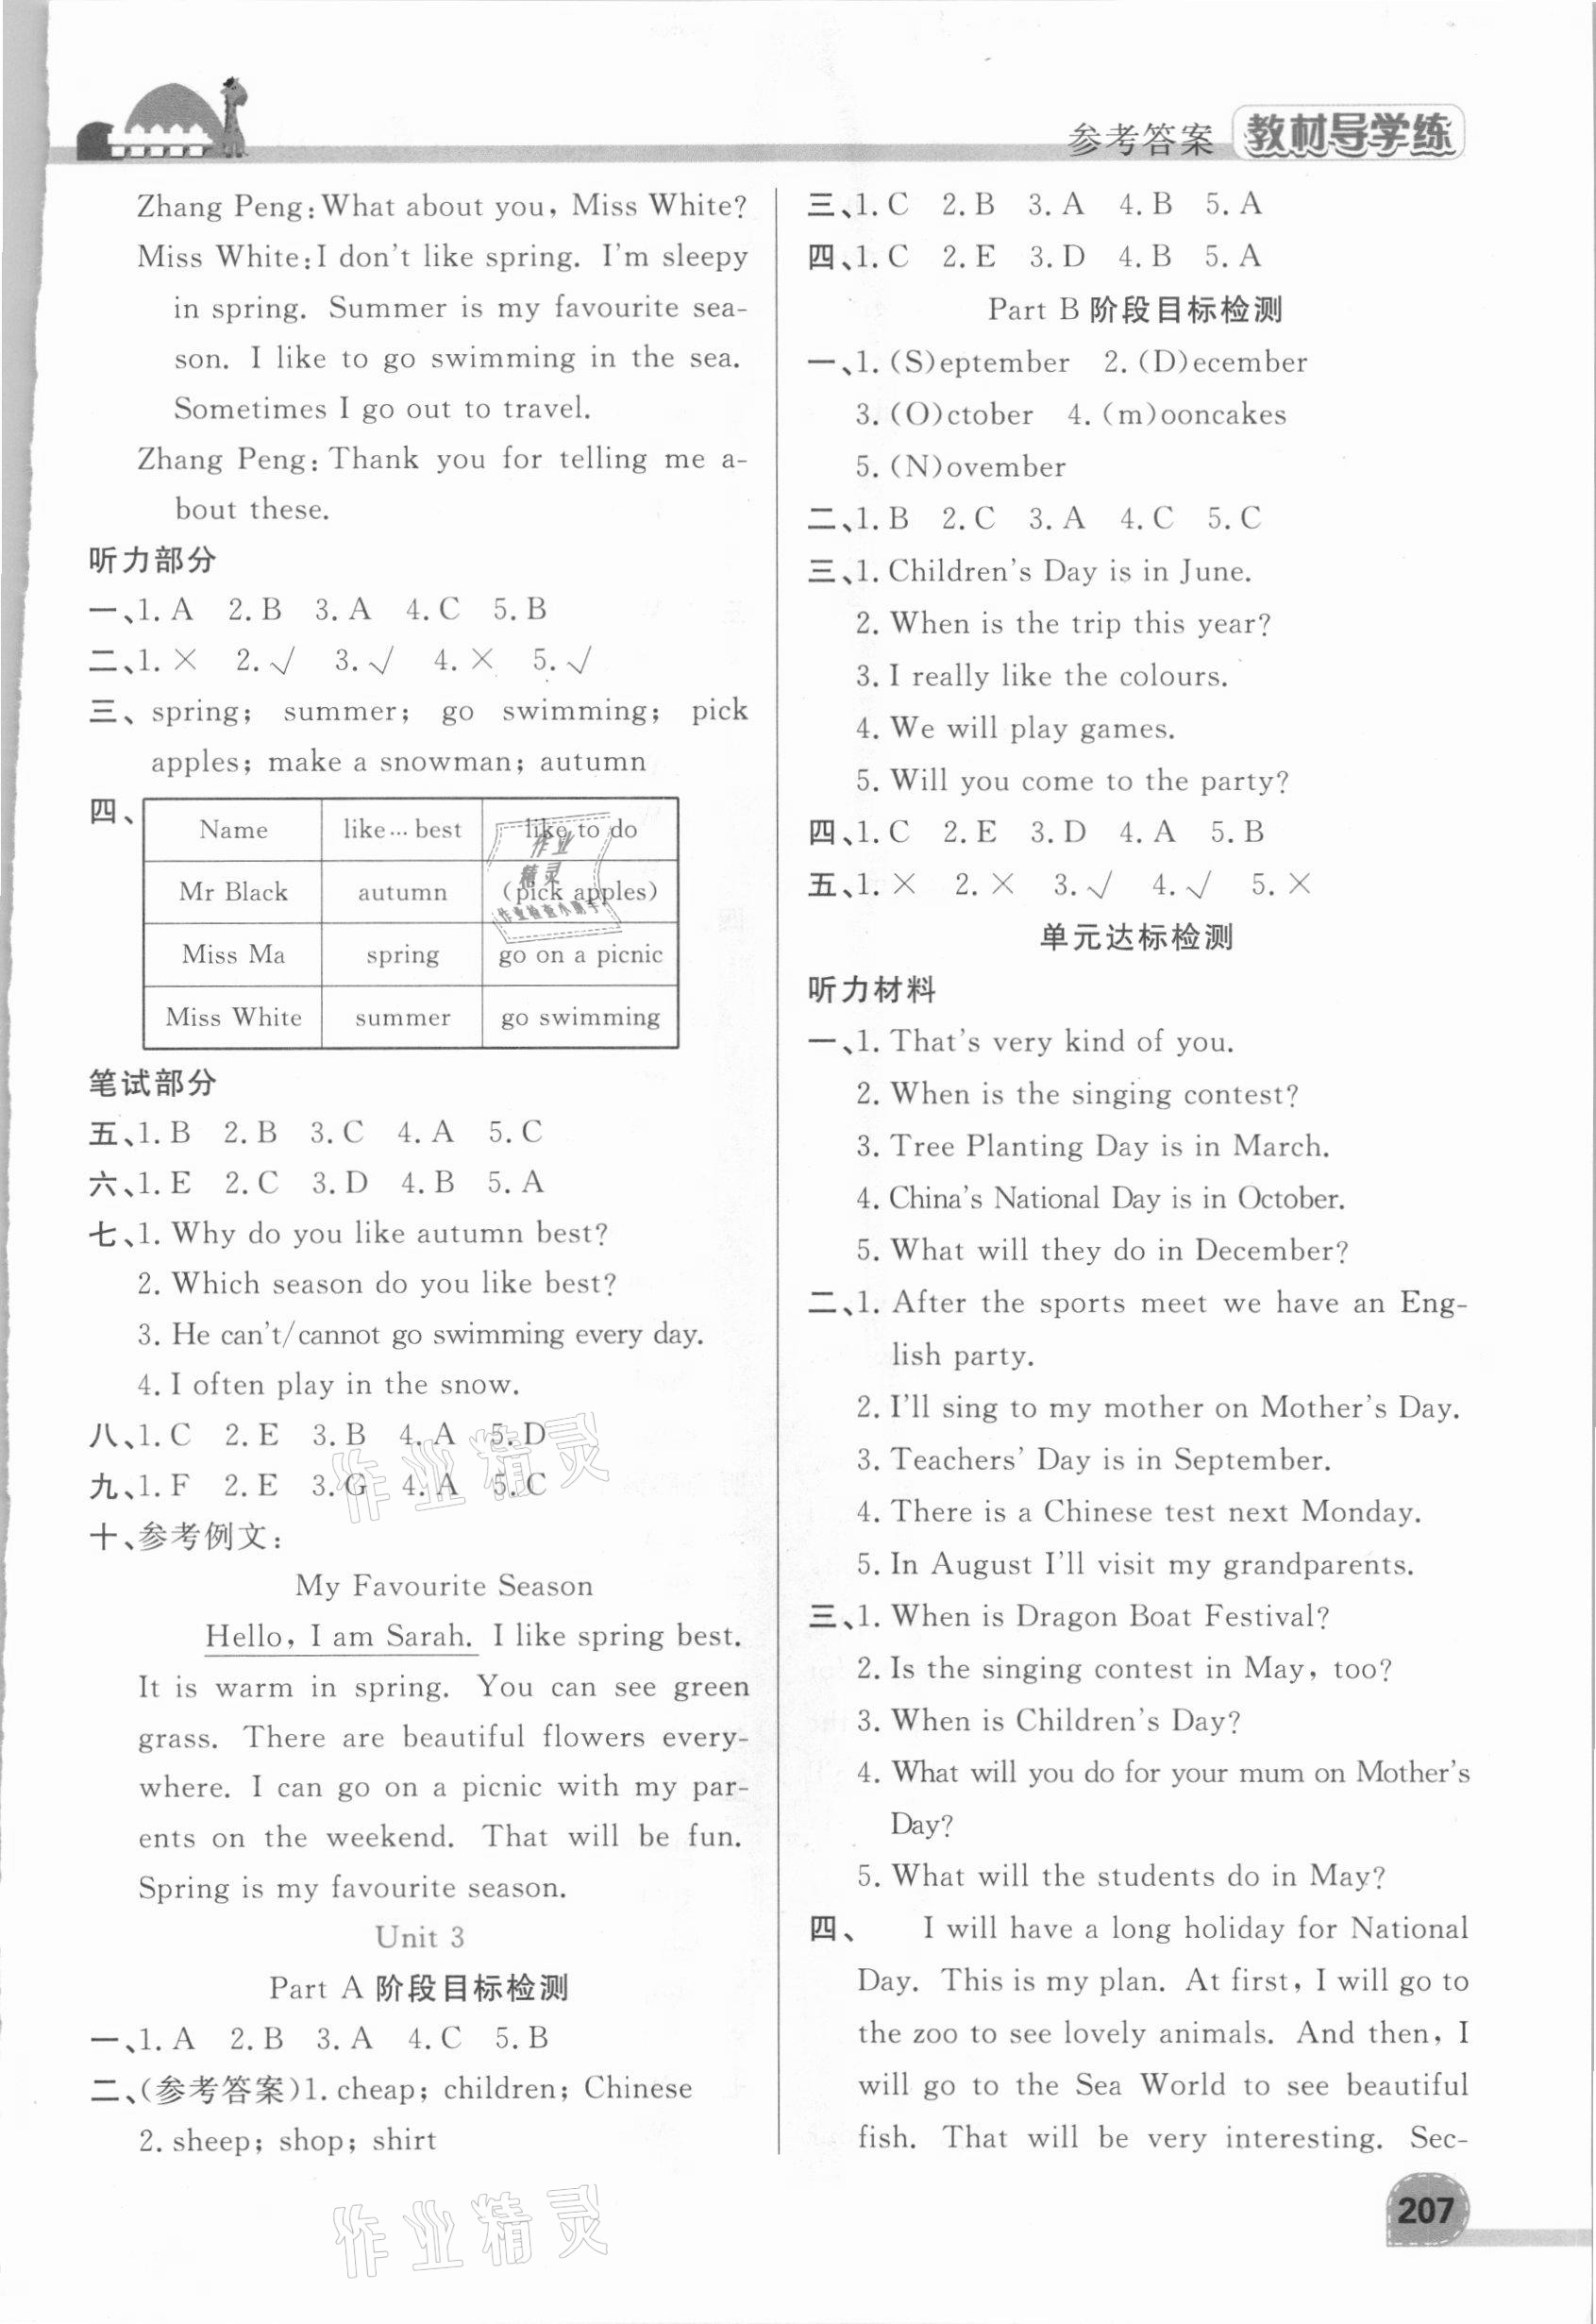 参考答案 教材导学练
Zhang Peng:What about you, Miss White?
Miss White:I don't like spring. I'm sleepy
in spring. Summer is my favourite sea-
son. I like to go swimming in the sea.
Sometimes I go out to travel.
Zhang Peng:Thank you for telling me a-
bout these.
听力部分
一、1. A 2. B 3. A 4. C 5. B
二、1. × 2. √ 3. √ 4. × 5. √
三、spring; summer; go swimming; pick
apples; make a snowman; autumn
四、
Name like…best like to do
Mr Black autumn (pick apples)
Miss Ma spring go on a picnic
Miss White summer go swimming
作业
精灵
作业检查小助手
笔试部分
五、1. B 2. B 3. C 4. A 5. C
六、1. E 2. C 3. D 4. B 5. A
七、1. Why do you like autumn best?
2. Which season do you like best?
3. He can't/cannot go swimming every day.
4. I often play in the snow.
八、1. C 2. E 3. B 4. A 5. D
九、1. F 2. E 3. G 4. A 5. C
作业精灵
十、参考例文:
My Favourite Season
Hello, I am Sarah. I like spring best.
It is warm in spring. You can see green
grass. There are beautiful flowers every-
where. I can go on a picnic with my par-
ents on the weekend. That will be fun.
Spring is my favourite season.
Unit 3
Part A 阶段目标检测
一、1. A 2. B 3. A 4. C 5. B
二、(参考答案)1. cheap; children; Chinese
2. sheep; shop; shirt
作业精灵
三、1. C 2. B 3. A 4. B 5. A
四、1. C 2. E 3. D 4. B 5. A
Part B 阶段目标检测
一、1. (S)eptember 2. (D)ecember
3. (O)ctober 4. (m)ooncakes
5. (N)ovember
二、1. B 2. C 3. A 4. C 5. C
三、1. Children's Day is in June.
2. When is the trip this year?
3. I really like the colours.
4. We will play games.
5. Will you come to the party?
四、1. C 2. E 3. D 4. A 5. B
五、1. × 2. × 3. √ 4. √ 5. ×
单元达标检测
听力材料
一、1. That's very kind of you.
2. When is the singing contest?
3. Tree Planting Day is in March.
4. China's National Day is in October.
5. What will they do in December?
二、1. After the sports meet we have an Eng-
lish party.
2. I'll sing to my mother on Mother's Day.
3. Teachers' Day is in September.
4. There is a Chinese test next Monday.
5. In August I'll visit my grandparents.
三、1. When is Dragon Boat Festival?
2. Is the singing contest in May, too?
3. When is Children's Day?
4. What will you do for your mum on Mother's
Day?
5. What will the students do in May?
四、 I will have a long holiday for National
Day. This is my plan. At first, I will go to
the zoo to see lovely animals. And then, I
will go to the Sea World to see beautiful
fish. That will be very interesting. Sec-
207